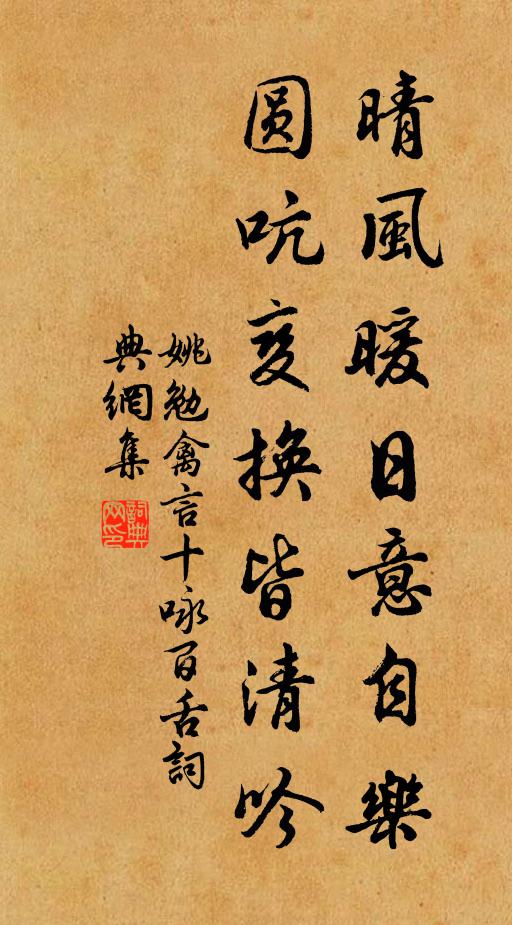 晴風暖日意自樂
圓吭变換皆清吟
姚勉禽言十咏百舌詞
典網集
詞典網印